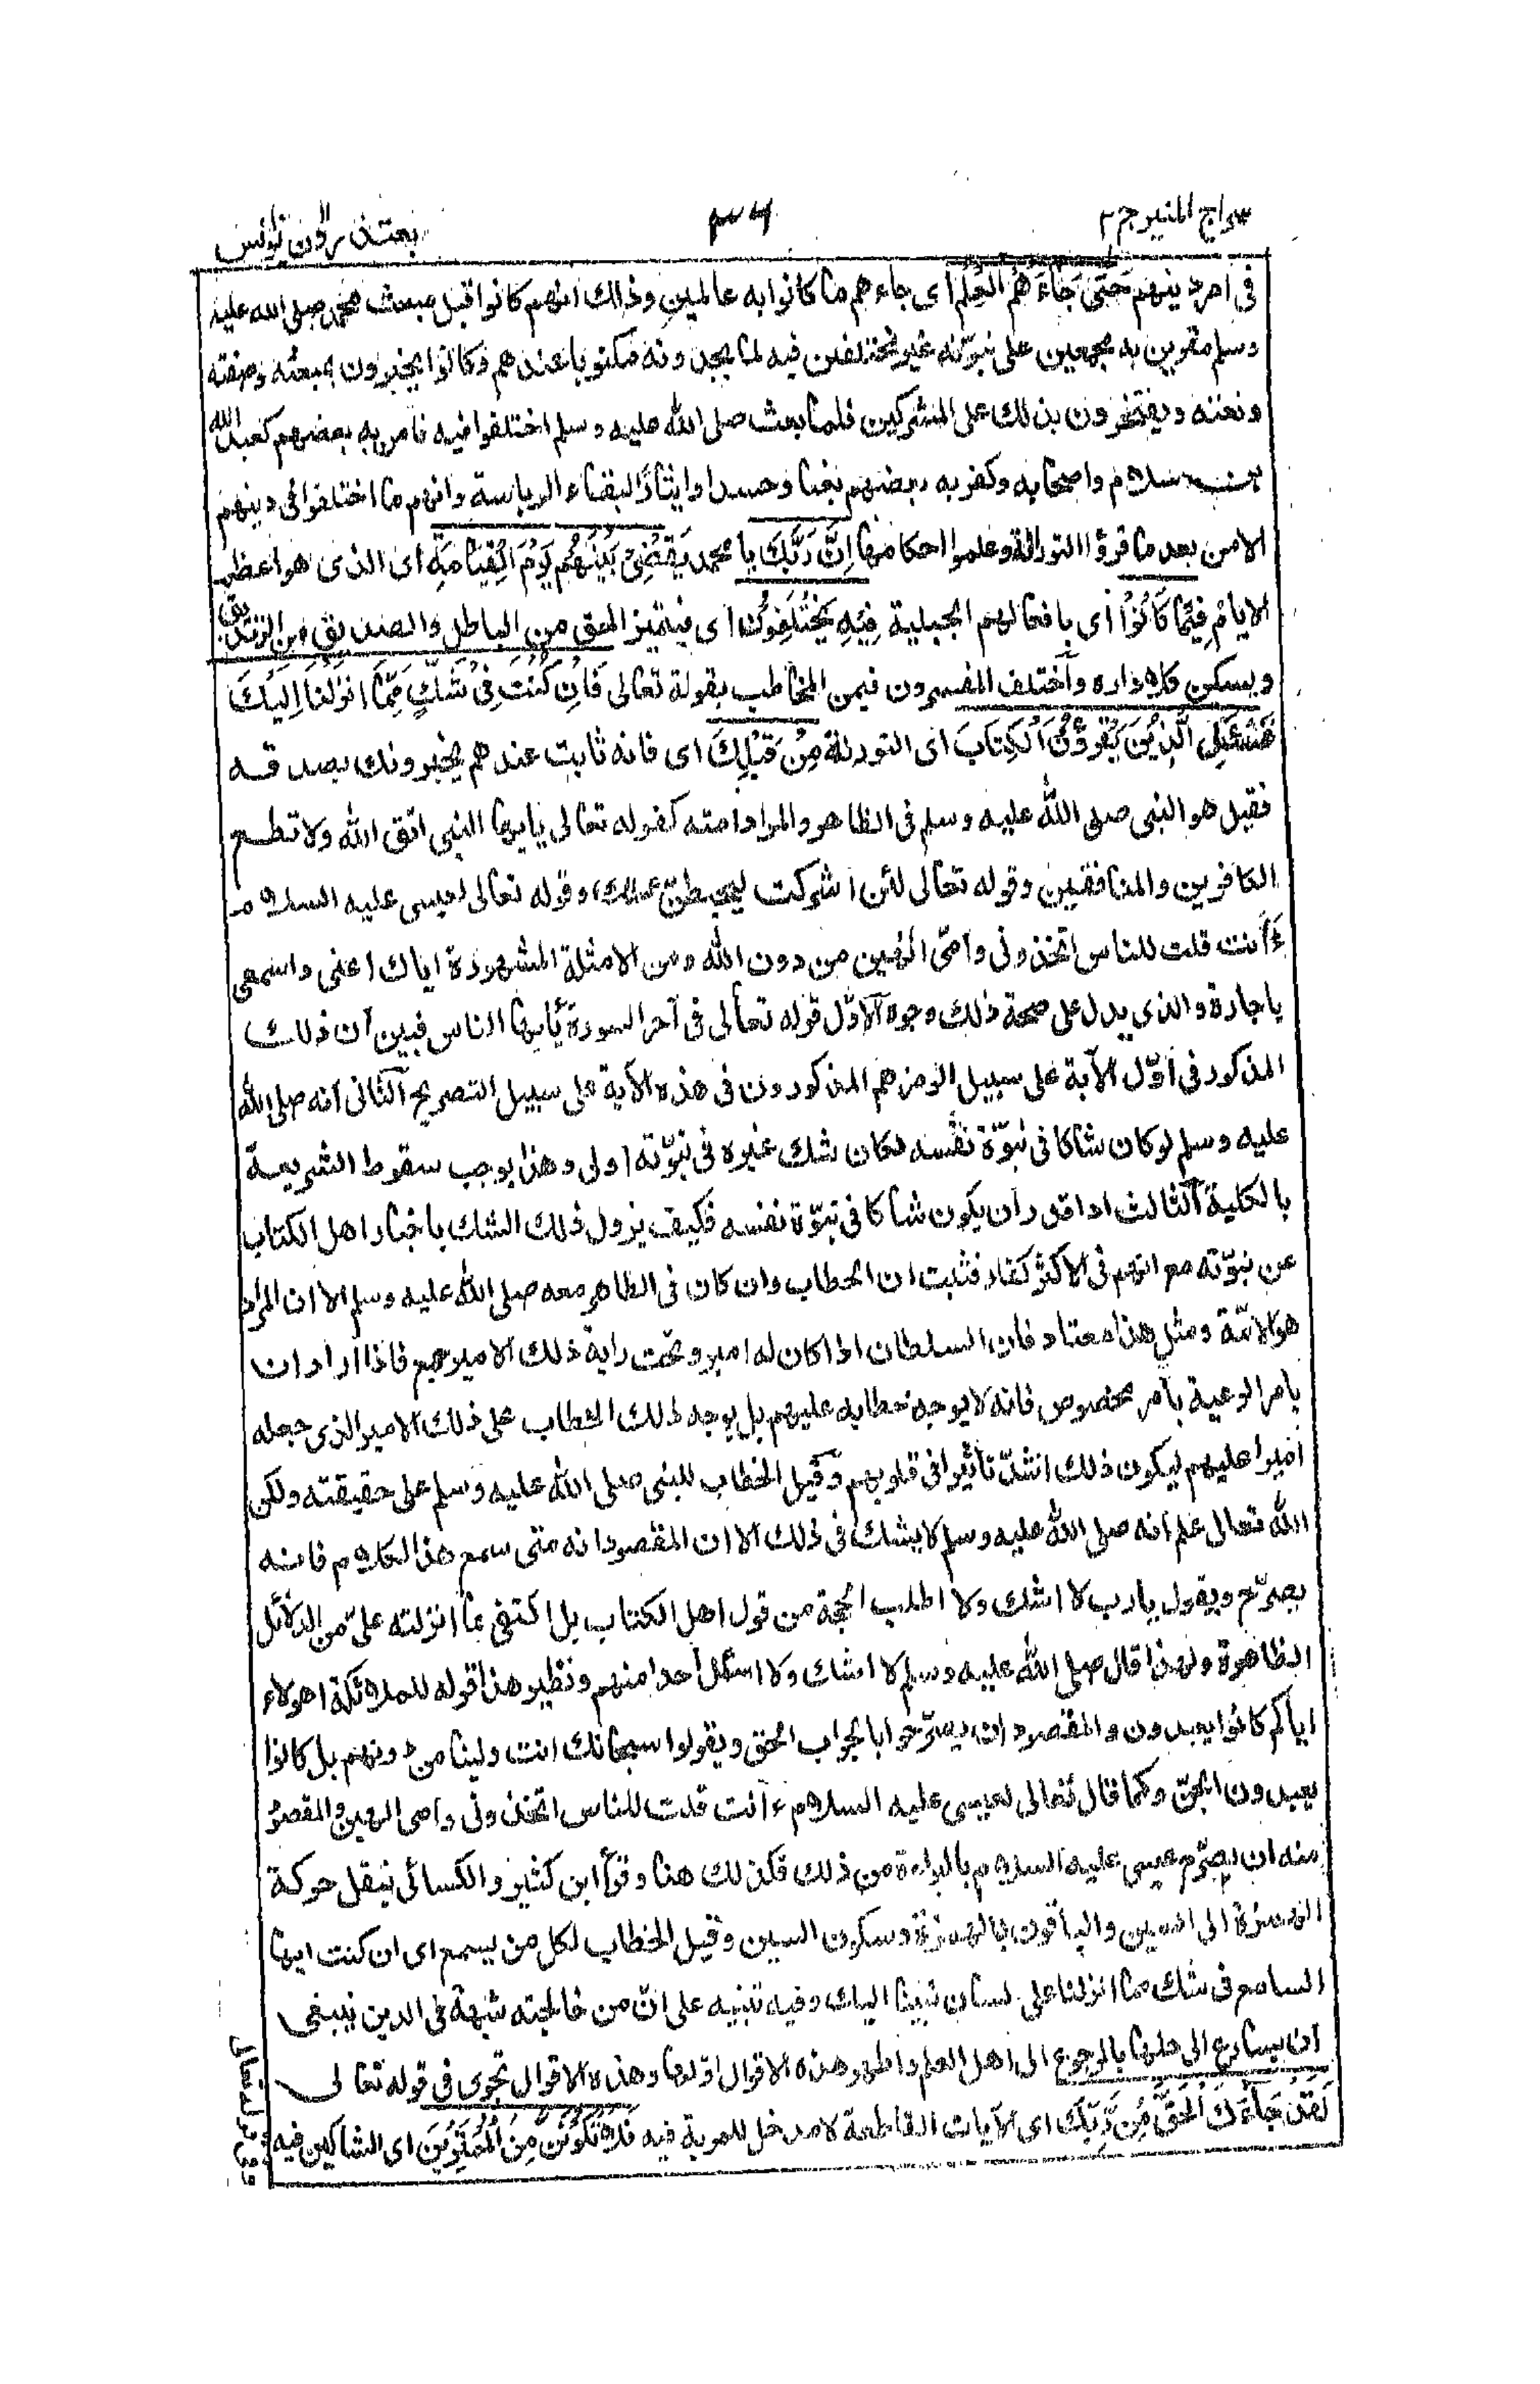 سراج المنير ج ٢
يعتذرون يونس
فى امر دينهم حَتّٰى جَاءَهُمُ الْعِلْمُ اى جاءهم ما كانوا به عالمين وذلك انهم كانوا قبل مبعث محمد صلى الله عليه
وسلم مقرين به مجمعين على نبوّته غير مختلفين فيه لما يجدونه مكتوبا عندهم وكانوا يخبرون بمبعثه وصفته
ونعته ويفتخرون بذلك على المشركين فلما بعث صلى الله عليه وسلم اختلفوا فيه فآمن به بعضهم كعبد الله
بن سلام واصحابه وكفر به بعضهم بغيا وحسدا وايثارًا لبقاء الرياسة وانهم ما اختلفوا فى دينهم
الا من بعد ما قرؤا التوراة وعلموا احكامها اِنَّ رَبَّكَ يا محمد يَقْضِىْ بَيْنَهُمْ يَوْمَ الْقِيَامَةِ اى الذى هو اعظم
الايام فِيْمَا كَانُوْا اى بافعالهم الجبلية فِيْهِ يَخْتَلِفُوْنَ اى فيتميز الحق من الباطل والصديق من الزنديق
ويسكن كلا داره وآختلف المفسرون فيمن المخاطب بقوله تعالى فَاِنْ كُنْتَ فِىْ شَكٍّ مِّمَّا انْزَلْنَا اِلَيْكَ
فَسْئَلِ الَّذِيْنَ يَقْرَؤُنَ الْكِتَابَ اى التوراة مِنْ قَبْلِكَ اى فانه ثابت عندهم يخبرونك بصدقه
فقيل هو النبى صلى الله عليه وسلم فى الظاهر والمراد امته كقوله تعالى يايها النبى اتق الله ولا تطع
الكافرين والمنافقين وقوله تعالى لئن اشركت ليحبطنّ عملك وقوله تعالى لعيسى عليه السلام
ءَاَنت قلت للناس اتخذونى وامّى الٰهين من دون الله ومن الامثلة المشهورة اياك اعنى واسمعى
يا جارة والذى يدل على صحة ذلك وجوه آلاوّل قوله تعالى فى آخر السورة يٰايها الناس فبين ان ذلك
المذكور فى اوّل الآية على سبيل الرمز هم المذكورون فى هذه الآية على سبيل التصريح آلثانى انه صلى الله
عليه وسلم لو كان شاكا فى نبوّة نفسه لكان شك غيره فى نبوّته اولى وهذا يوجب سقوط الشريعة
بالكلية آلثالث اذا قدر ان يكون شاكا فى نبوّة نفسه فكيف يزول ذلك الشك باخبار اهل الكتاب
عن نبوّته مع انهم فى الاكثر كفار فثبت ان الخطاب وان كان فى الظاهر معه صلى الله عليه وسلم الا ان المراد
هو الامّة ومثل هذا معتاد فان السلطان اذا كان له امير وتحت راية ذلك الامير جمع فاذا اراد ان
يامر الرعية بامر مخصوص فانه لا يوجه خطابه عليهم بل يوجه ذلك الخطاب على ذلك الامير الذى جعله
اميرا عليهم ليكون ذلك اشدّ تأثيرا فى قلوبهم وقيل الخطاب للنبى صلى الله عليه وسلم على حقيقته ولكن
الله تعالى علم انه صلى الله عليه وسلم لا يشك فى ذلك الا ان المقصود انه متى سمع هذا الكلام فانه
يصرّح ويقول يا رب لا اشك ولا اطلب الحجة من قول اهل الكتاب بل اكتفى بما انزلته علىّ من الدلائل
الظاهرة ولهذا قال صلى الله عليه وسلم لا اشك ولا اسئل احدا منهم ونظير هذا قوله للملائكة اهولاء
اياكم كانوا يعبدون والمقصود ان يصرّحوا بالجواب الحق ويقولوا سبحانك انت ولينا من دونهم بل كانوا
يعبدون الجنّ وكما قال تعالى لعيسى عليه السلام ءانت قلت للناس اتخذونى وامى الهين والمقصود
منه ان يصرّح عيسى عليه السلام بالبراءة من ذلك فكذلك هنا وقرأ ابن كثير والكسائى بنقل حركة
الهمزة الى السين والباقون بالهمزة وسكون السين وقيل الخطاب لكل من يسمع اى ان كنت ايها
السامع فى شك مما انزلنا على لسان نبينا اليك وفيه تنبيه على انّ من خالجته شبهة فى الدين ينبغى
ان يسارع الى حلها بالرجوع الى اهل العلم واظهر هذه الاقوال اوّلها وهذه الاقوال تجرى فى قوله تعالى
لَقَدْ جَاءَكَ الْحَقُّ مِنْ رَّبِّكَ اى الآيات القاطعة لا مدخل للمرية فيه فَلَا تَكُوْنَنَّ مِنَ الْمُمْتَرِيْنَ اى الشاكين فيه